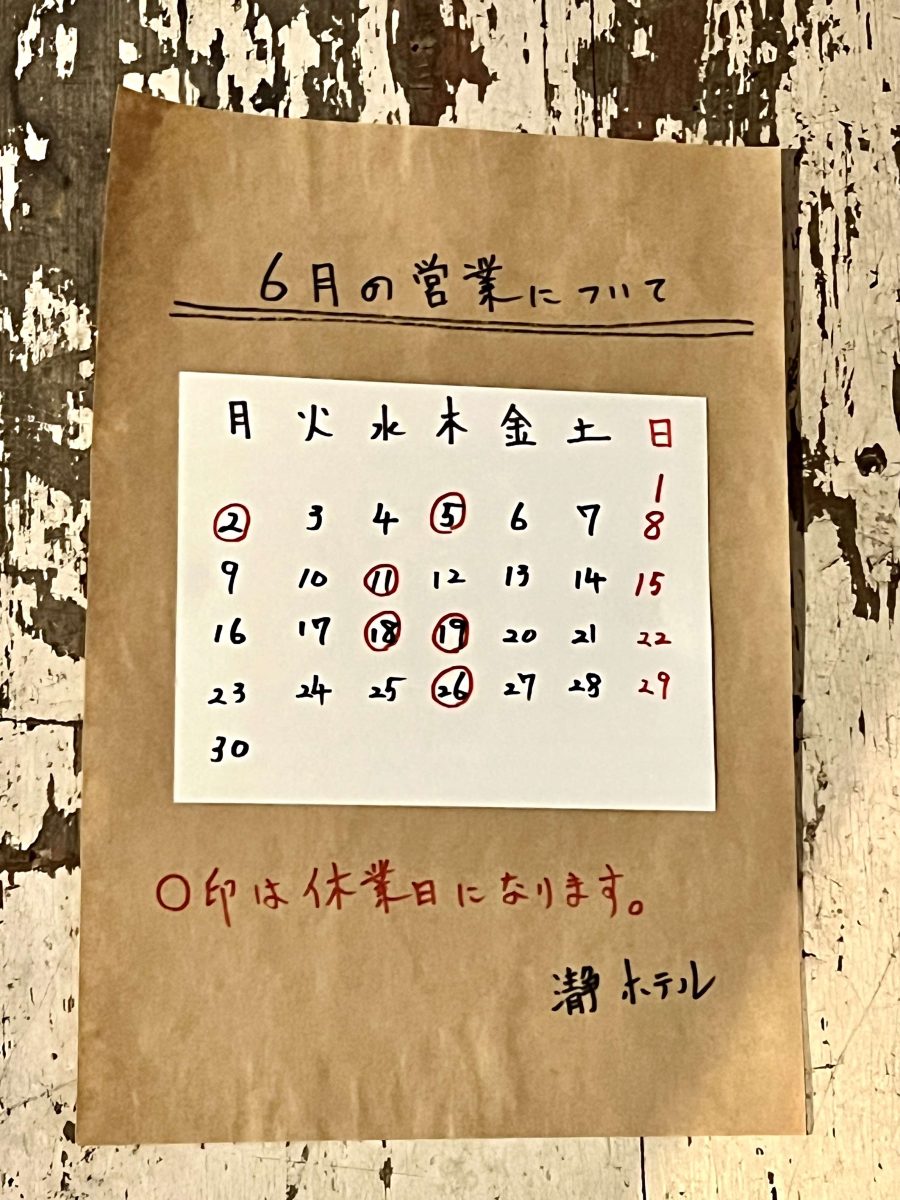 6月の営業について
月 火 水 木 金 土 日
1
2 3 4 5 6 7 8
9 10 11 12 13 14 15
16 17 18 19 20 21 22
23 24 25 26 27 28 29
30
○印は休業日になります。
瀞ホテル